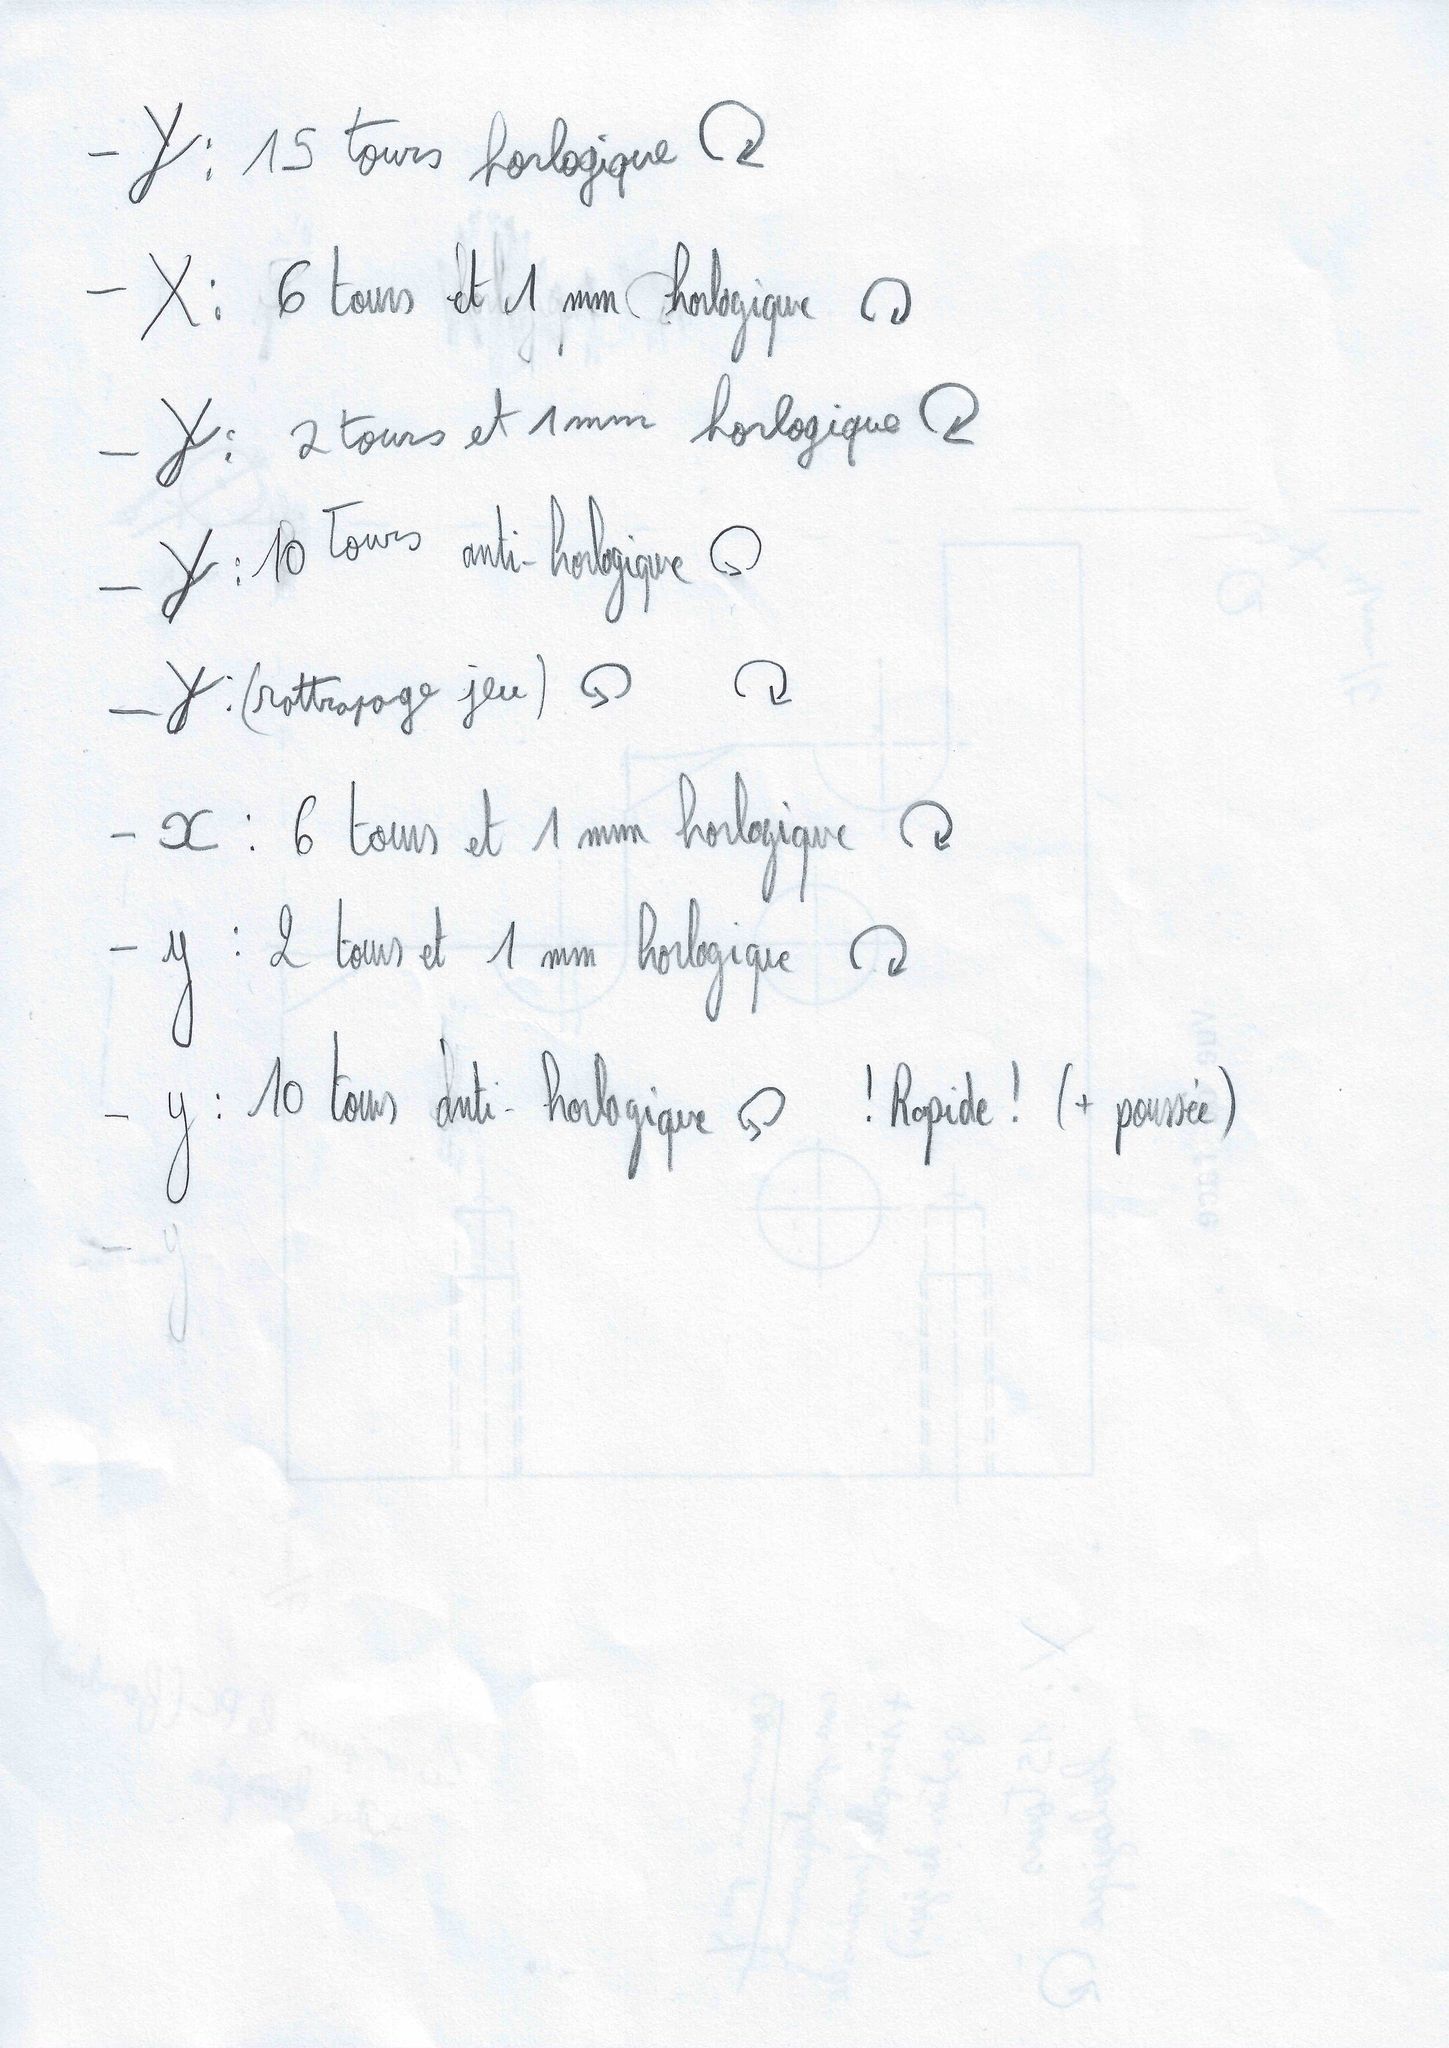 - Y : 15 tours horlogique ↻
- X : 6 tours et 1 mm horlogique ↻
- Y : 2 tours et 1 mm horlogique ↻
- Y : 10 Tours anti-horlogique ↺
- Y : (rattrapage jeu) ↺ ↻
- x : 6 tours et 1 mm horlogique ↻
- y : 2 tours et 1 mm horlogique ↻
- y : 10 tours anti-horlogique ↺ ! Rapide ! (+ poussée)
- y